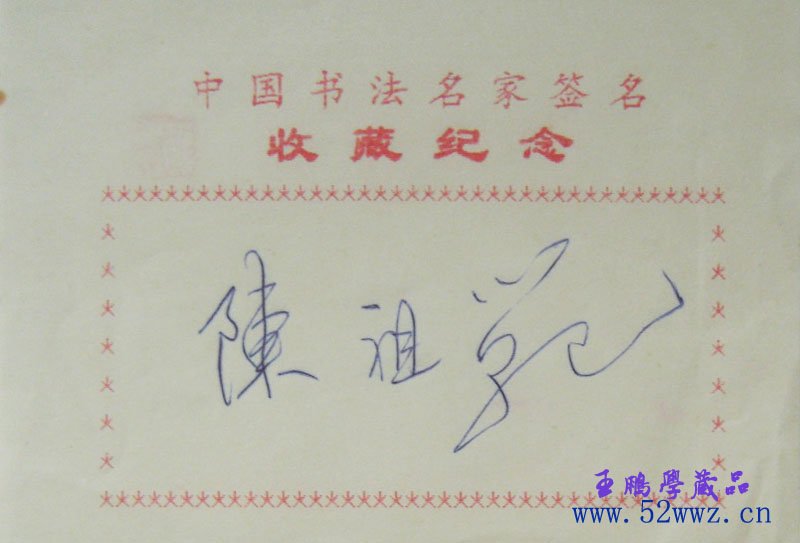 中国书法名家签名
收藏纪念
陳祖範
王鵬學藏品
www.52wwz.cn